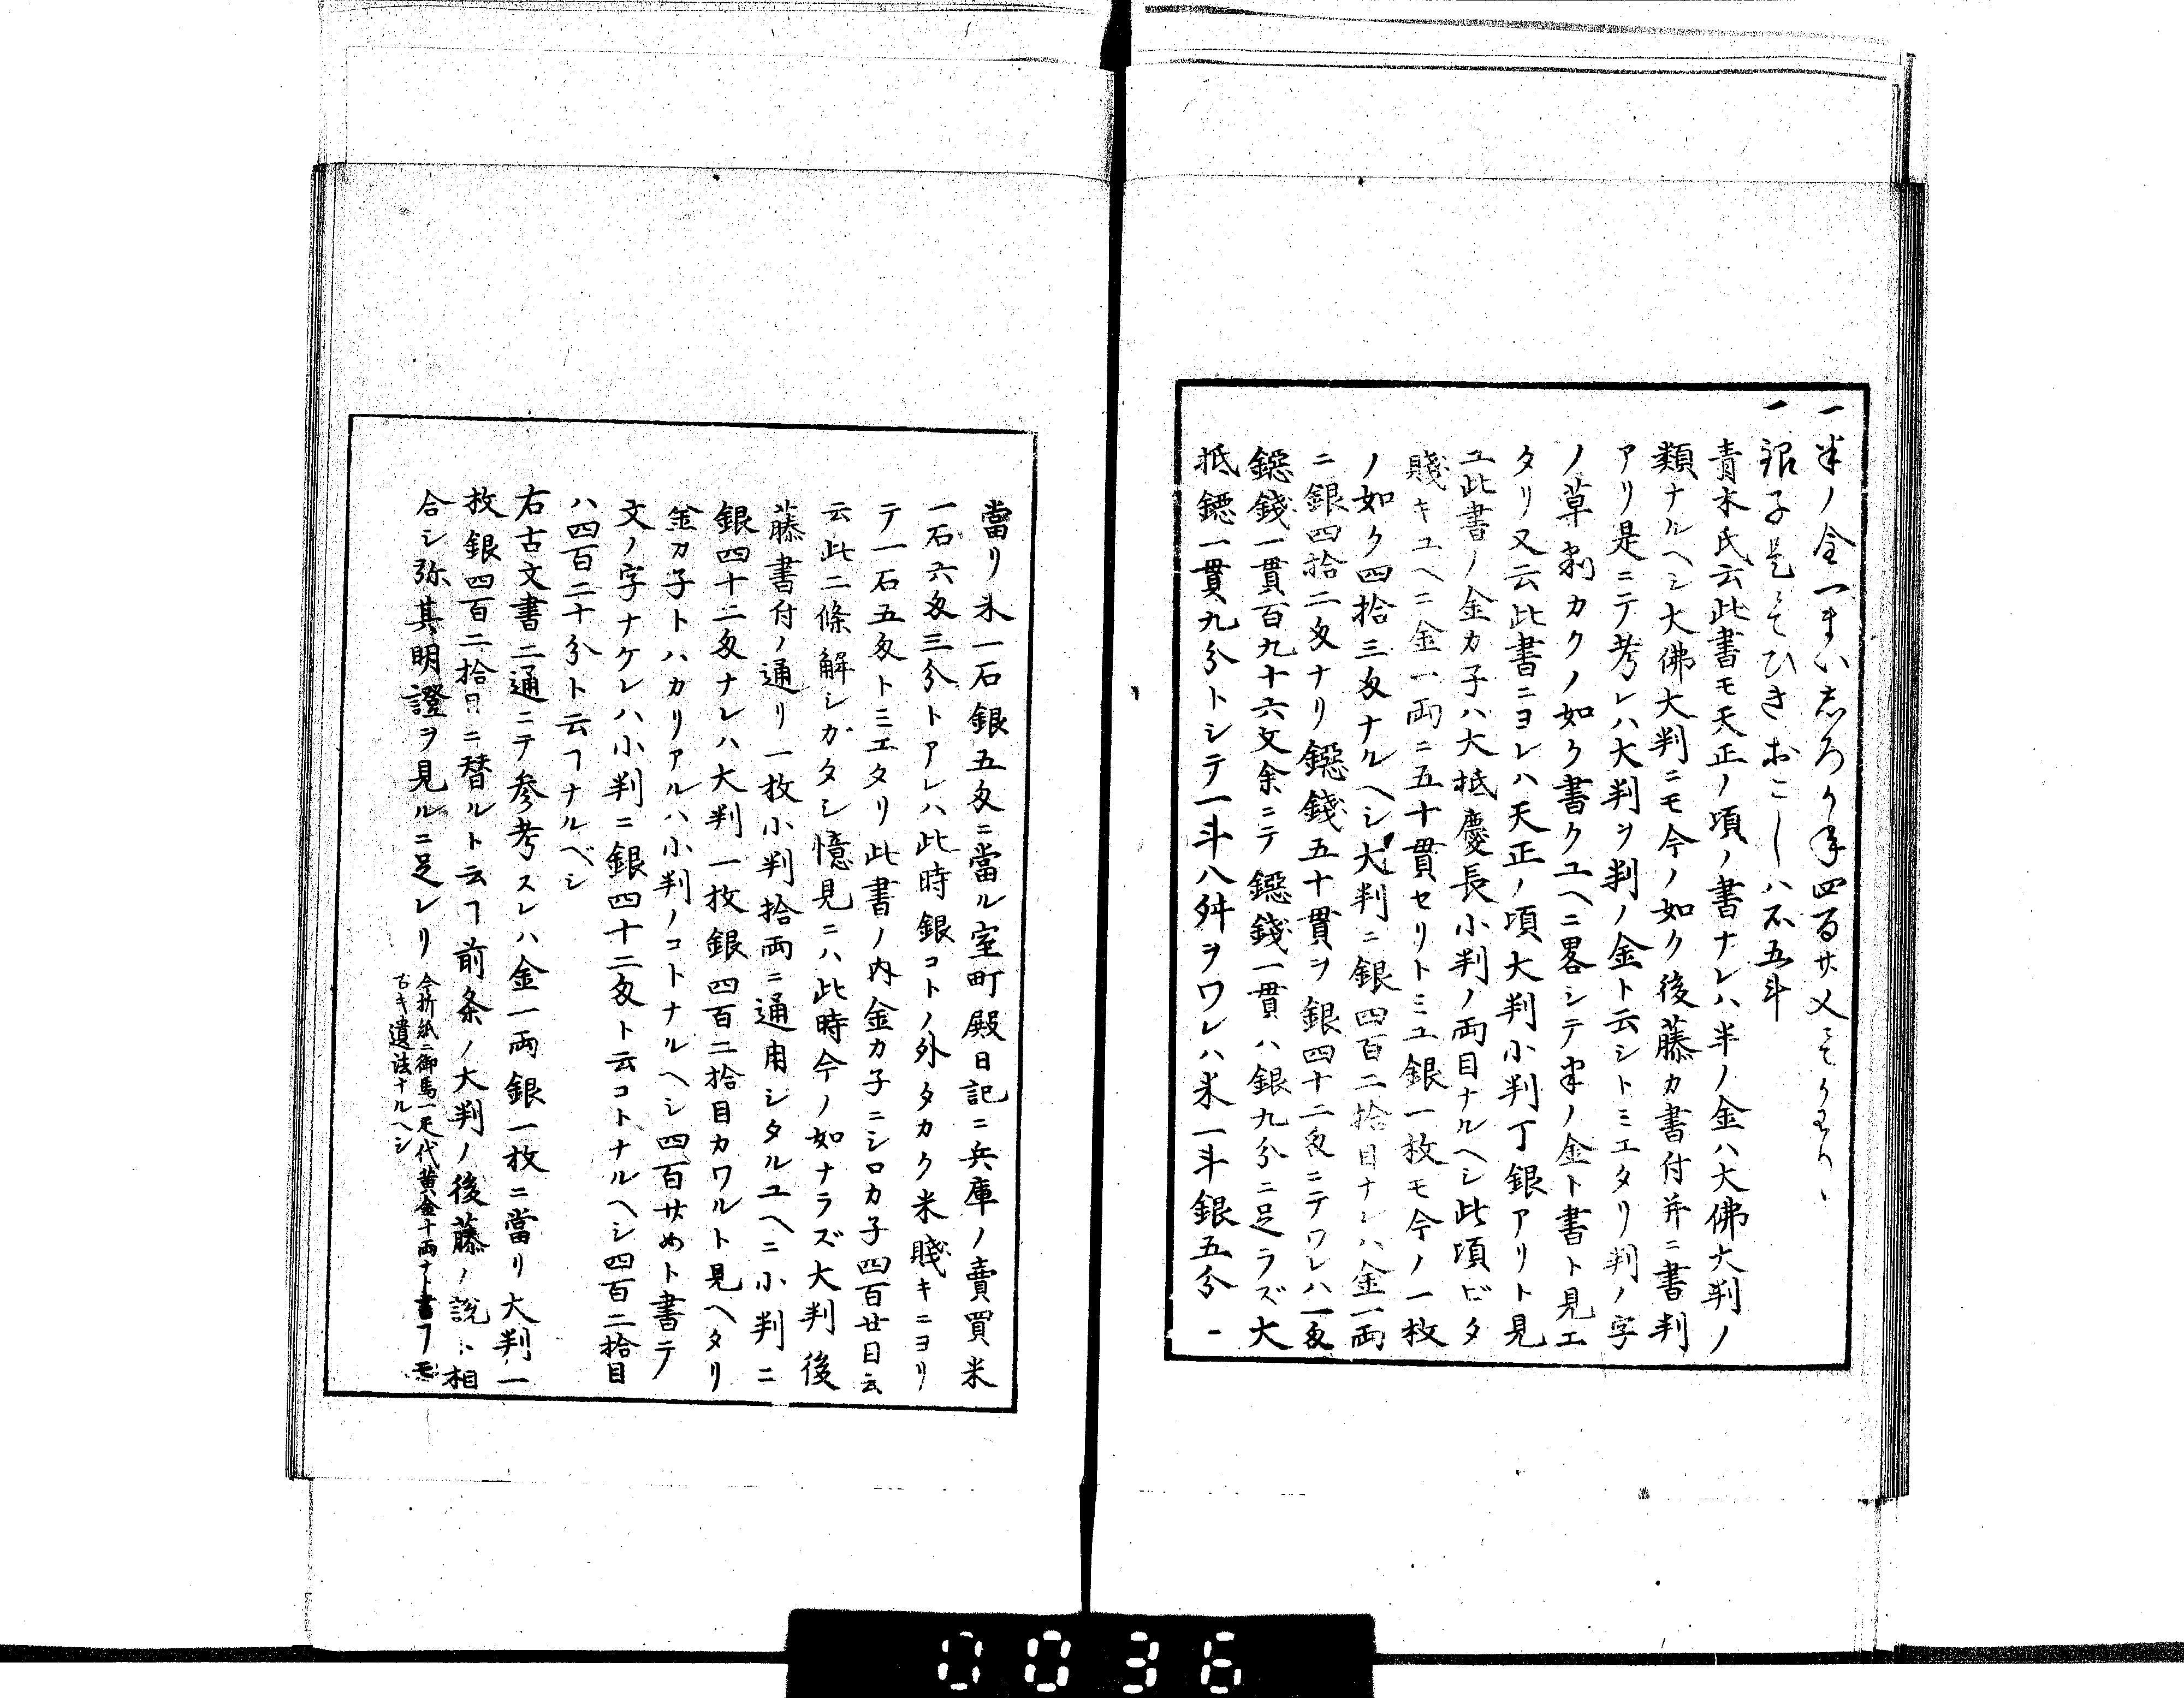 一半ノ金一まい志ろかね四百廿文
一銀子是にてひきおこし八石五斗
青木氏云此書モ天正ノ頃ノ書ナレハ半ノ金ハ大佛大判ノ
類ナルヘシ大佛大判ニモ今ノ如ク後藤カ書付并ニ書判
アリ是ニテ考レハ大判ヲ判ノ金ト云シトミエタリ判ノ字
ノ草カクノ如ク書クユヘニ畧シテ半ノ金ト書ト見エ
タリ又云此書ニヨレハ天正ノ頃大判小判丁銀アリト見
ユ此書ノ金カ子ハ大抵慶長小判ノ両目ナルヘシ此頃ビタ
賤キユヘニ金一両ニ五十貫セリトミユ銀一枚モ今ノ一枚
ノ如ク四拾三匁ナルヘシ大判ニ銀四百二拾目ナレハ金一両
ニ銀四拾二匁ナリ鐚錢五十貫ヲ銀四十二匁ニテワレハ一匁
鐚錢一貫百九十六文余ニテ鐚錢一貫ハ銀九分ニ足ラズ大
抵鐚一貫九分トシテ一斗八舛ヲワレハ米一斗銀五分一
當リ米一石銀五匁ニ當ル室町殿日記ニ兵庫ノ賣買米
一石六匁三分トアレハ此時銀コトノ外タカク米賤キニヨリ
テ一石五匁トミエタリ此書ノ内金カ子ニシロカ子四百廿目云
云此二條解シカタシ憶見ニハ此時今ノ如ナラズ大判後
藤書付ノ通リ一枚小判拾両ニ通用シタルユヘニ小判ニ
銀四十二匁ナレハ大判一枚銀四百二拾目カワルト見ヘタリ
金カ子トハカリアルハ小判ノコトナルヘシ四百廿めト書テ
文ノ字ナケレハ小判ニ銀四十二匁ト云コトナルヘシ四百二拾目
ハ四百二十分ト云ヿナルベシ
右古文書二通ニテ参考スレハ金一両銀一枚ニ當リ大判一
枚銀四百二拾目ニ替ルト云ヿ前条ノ大判ノ後藤ノ説ト相
合シ弥其明證ヲ見ルニ足レリ
今折紙ニ御馬一疋代黄金十両ナト書ヿモ
古キ遺法ナルヘシ
0036